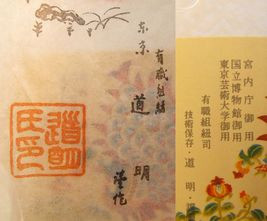 宮内庁御用
国立博物館御用
東京芸術大学御用
有職組紐司
技術保存・道明
東京
有職組紐
道明
道明
氏印